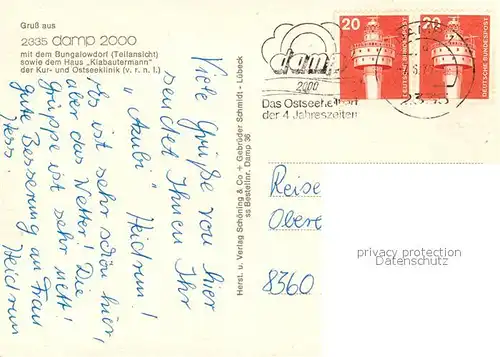 Gruß aus
2335 damp 2000
mit dem Bungalowdorf (Teilansicht)
sowie dem Haus „Klabautermann"
der Kur- und Ostseeklinik (v. r. n. l.)
Viele Grüße von hier
sendet Ihnen Ihr
„Azubi" Heidrun!
Es ist sehr schön hier,
aber das Wetter! Die
Gruppe ist sehr nett!
Gute Besserung an Frau
Hess
Heidrun
Herst. u. Verlag Schöning & Co + Gebrüder Schmidt - Lübeck
ss Bestellnr. Damp 36
damp
2000
Das Ostseeheilbad
der 4 Jahreszeiten
20
DEUTSCHE BUNDESPOST
20
DEUTSCHE BUNDESPOST
Reise
Obere
8360
privacy protection
Datenschutz